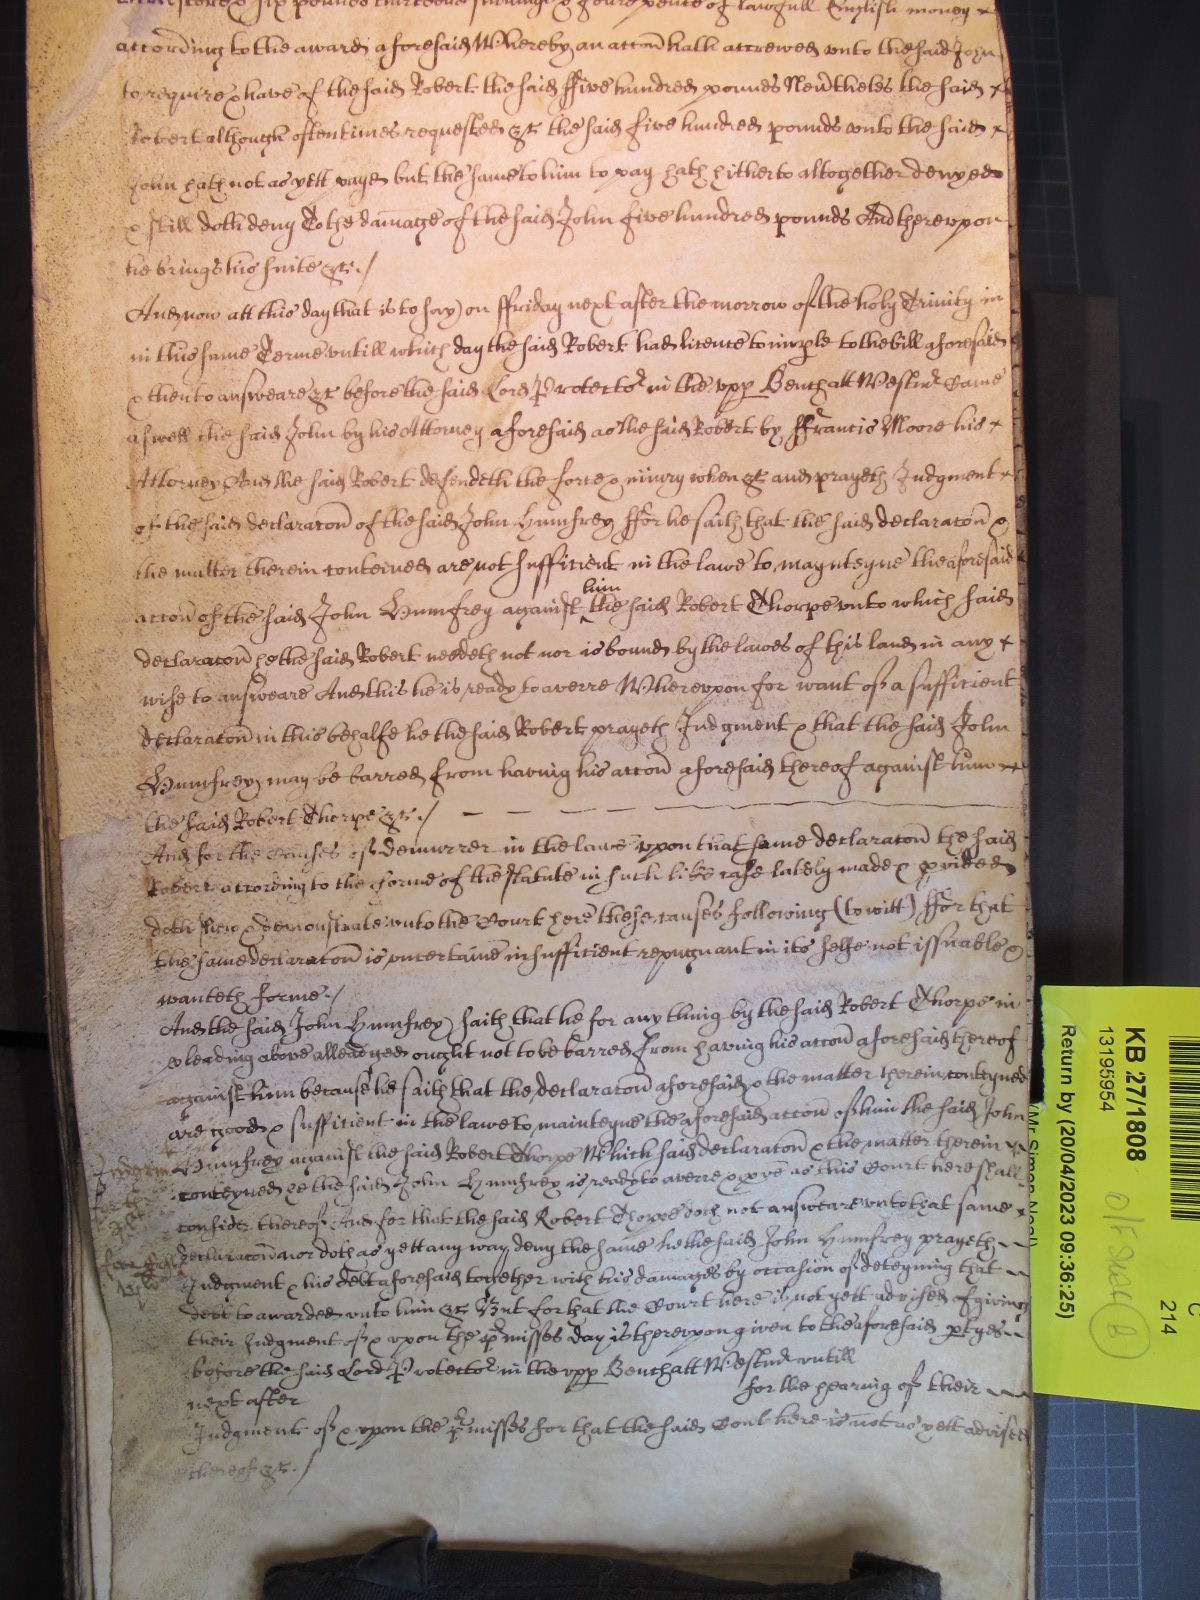 six pounds thirteene shillings & foure pence of lawfull English money &
according to the award aforesaid Whereby an accon hath accrewed unto the said John
to require & have of the said Robert the said ffive hundred pounds Neûtheles the said
Robert although oftentimes requested &c the said five hundred pounds unto the said
John hath not as yett payed but the same to him to pay hath hitherto altogether denyed
& still doth deny To the damage of the said John five hundred pounds And thereupon
he brings his suite &c./
And now att this day that is to say) on ffriday next after the morrow of the holy Trinity in
in this same Terme untill which day the said Robert had licence to imple to the bill aforesaid
& then to answeare &c before the said Lord Protector in the upp Bench att Westmr Came
aswell the said John by his Attorney aforesaid as the said Robert by ffrancis Moore his
Attorney And the said Robert defendeth the force & iniury when &c and prayeth Judgment
of the said declaracon of the said John Humfrey ffor he saith that the said declaracon &
the matter therein conteined are not sufficient in the lawe to maynteyne the aforesaid
him
accon of the said John Humfrey against the said Robert Thorpe unto which said
declaracon he the said Robert needeth not nor is bound by the lawes of this land in any
wise to answeare And this he is ready to averre Whereupon for want of a sufficient
declaracon in this behalfe he the said Robert prayeth Judgment & that the said John
Humfrey may be barred from having his accon aforesaid thereof against him
the said Robert Thorpe &c./
And for the causes of demurrer in the lawe upon that same declaracon the said
Robert according to the forme of the statute in such like case lately made & p vided
doth shew & demonstrate unto the Court here these causes following (to witt) ffor that
the same declaracon is uncertaine insufficient repugnant in its selfe not issuable &
wanteth forme./
And the said John Humfrey) saith that he for any thing by the said Robert Thorpe in
pleading above alleadged ought not to be barred from having his accon aforesaid thereof
against him because he saith that the declaracon aforesaid & the matter therein conteyned
are good & sufficient in the lawe to mainteyne the aforesaid accon of him the said John
Humfrey against the said Robert Thorpe Which said declaracon & the matter therein
conteyned he the said John Humfrey is ready to averre & p ve as this Court here shall
consider thereof And for that the said Robert Thorpe doth not answeare unto that same
declaracon nor doth as yett any way deny the same he the said John Humfrey prayeth
Judgment & his debt aforesaid together with his damages by occasion of deteyning that
debt to awarded unto him &c But for that the Court here is not yett advised of giving
their Judgment of & upon the p misses day is thereupon given to the aforesaid ptyes
before the said Lord Protector in the upp Bench att Westmr untill
next after for the hearing of their
Judgment of & upon the p misses for that the said Court here is not as yett advised
thereof &c./
KB 27/1808
13195954
Return by (20/04/2023 09:36:25)
214